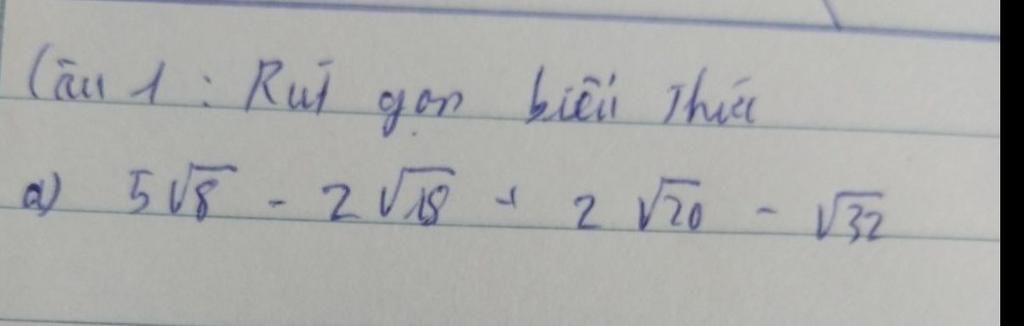 Câu 1 : Rút gọn biểu thức
a) 5√8 - 2√18 + 2√20 - √32